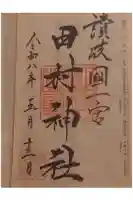 讃岐國一宮
田村神社
令和八年五月十二日